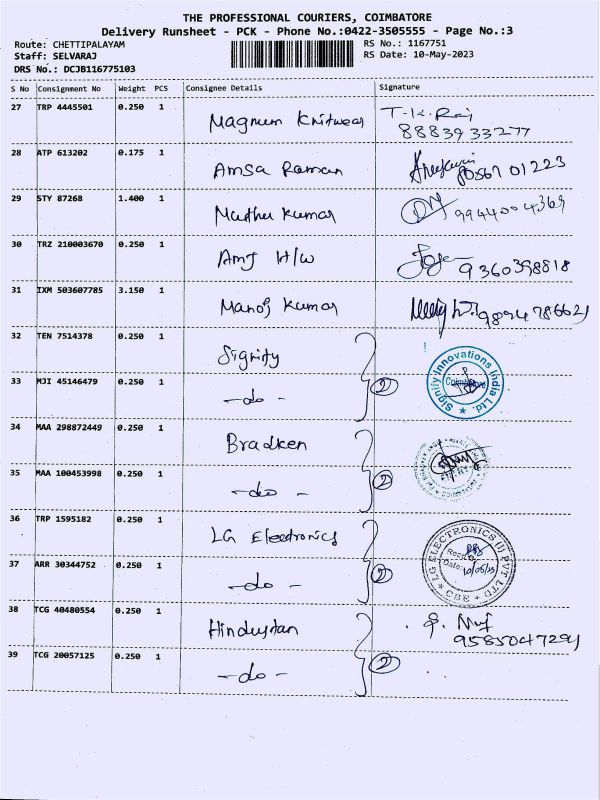 THE PROFESSIONAL COURIERS, COIMBATORE
Delivery Runsheet - PCK - Phone No.:0422-3505555 - Page No.:3
Route: CHETTIPALAYAM RS No.: 1167751
Staff: SELVARAJ RS Date: 10-May-2023
DRS No.: DCJB116775103
S No Consignment No Weight PCS Consignee Details Signature
27 TRP 4445501 0.250 1 Magnum Knitwear T-K.Raj
8883933277
28 ATP 613202 0.175 1 Amsa Raman
29 STY 87268 1.400 1 Muthu Kumar 9944004369
30 TRZ 210003670 0.250 1 Amj H/W 9360398818
31 IXM 503607785 3.150 1 Manoj Kumar 9894786621
32 TEN 7514378 0.250 1 Signify
Signify Innovations India Ltd
Coimbatore
33 MJI 45146479 0.250 1 -do- 2
34 MAA 298872449 0.250 1 Bradken
35 MAA 100453998 0.250 1 -do- 2
36 TRP 1595182 0.250 1 LG Electronics
LG ELECTRONICS (I) PVT LTD
CBE
Date: 10/05/23
37 ARR 30344752 0.250 1 -do- 2
38 TCG 40480554 0.250 1 Hindustan
9585047291
39 TCG 20057125 0.250 1 -do- 2